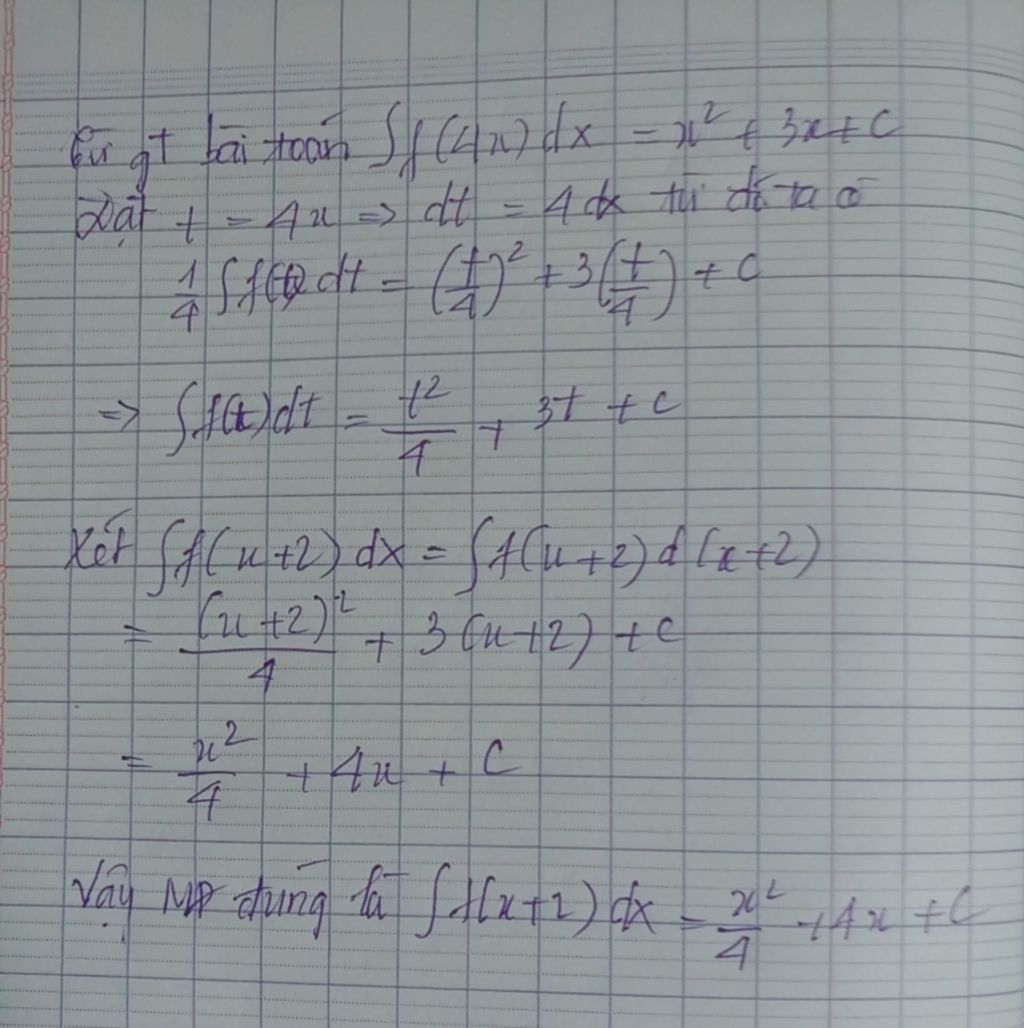 Từ gt bài toán ∫f(4x)dx = x² + 3x + C
Đặt t = 4x => dt = 4dx từ đó ta có
1/4 ∫f(t)dt = (t/4)² + 3(t/4) + C
=> ∫f(t)dt = t²/4 + 3t + C
Xét ∫f(x+2)dx = ∫f(x+2)d(x+2)
= (x+2)²/4 + 3(x+2) + C
= x²/4 + 4x + C
Vậy MĐ đúng là ∫f(x+2)dx = x²/4 + 4x + C